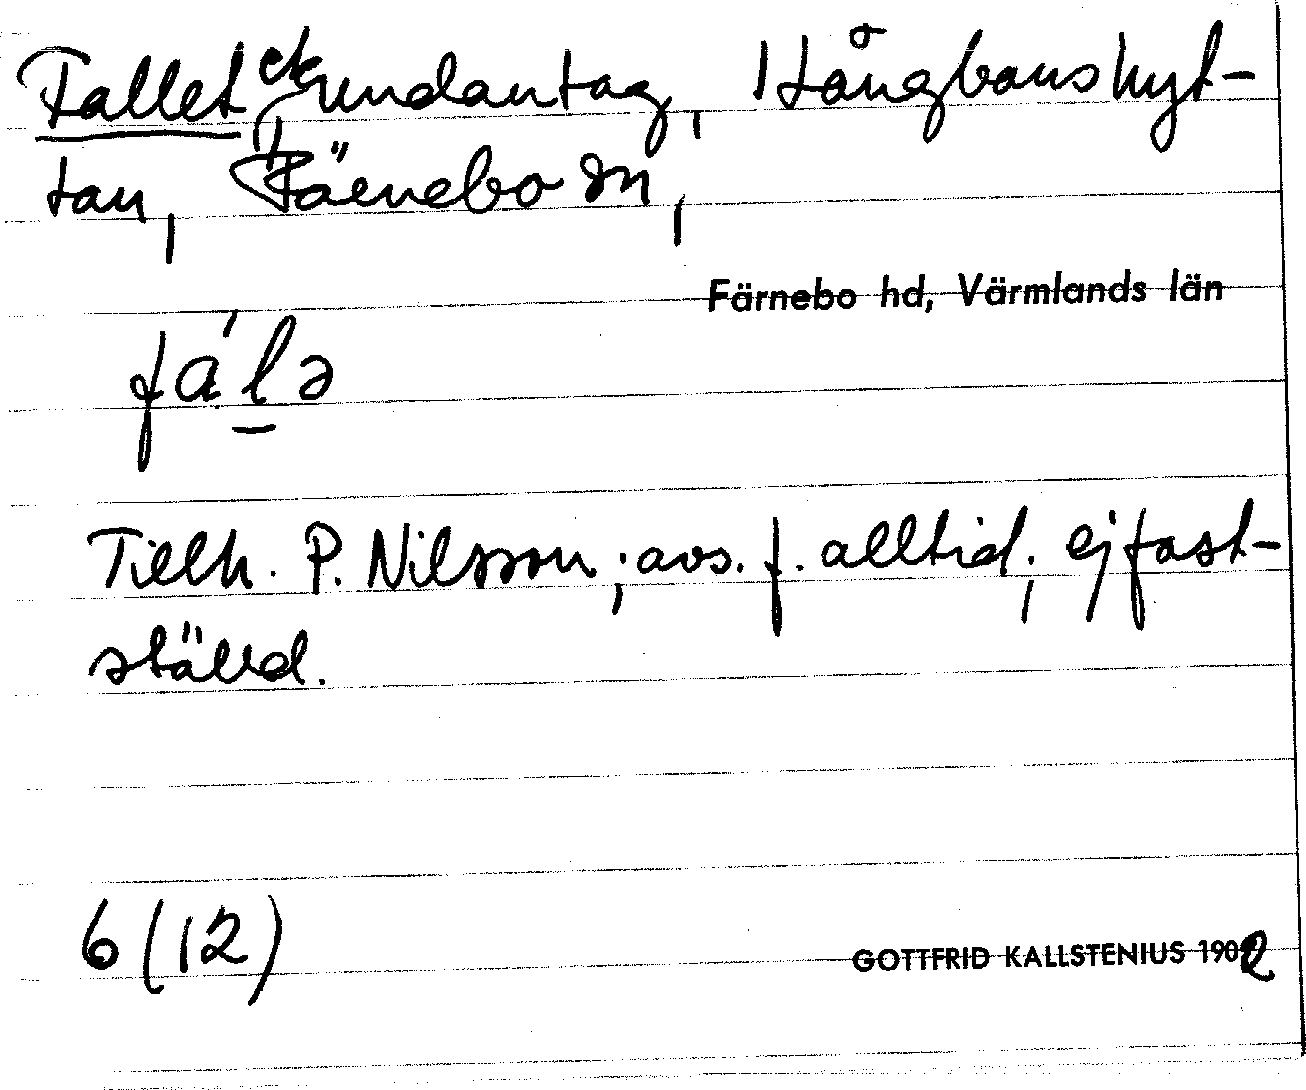 Fallet, undantag, Långbanshyt-
tan, Färnebo sn,
Färnebo hd, Värmlands län
fálə
Tillh. P. Nilsson; avs. f. alltid; ej fast-
ställd.
6 (12)
GOTTFRID KALLSTENIUS 1902